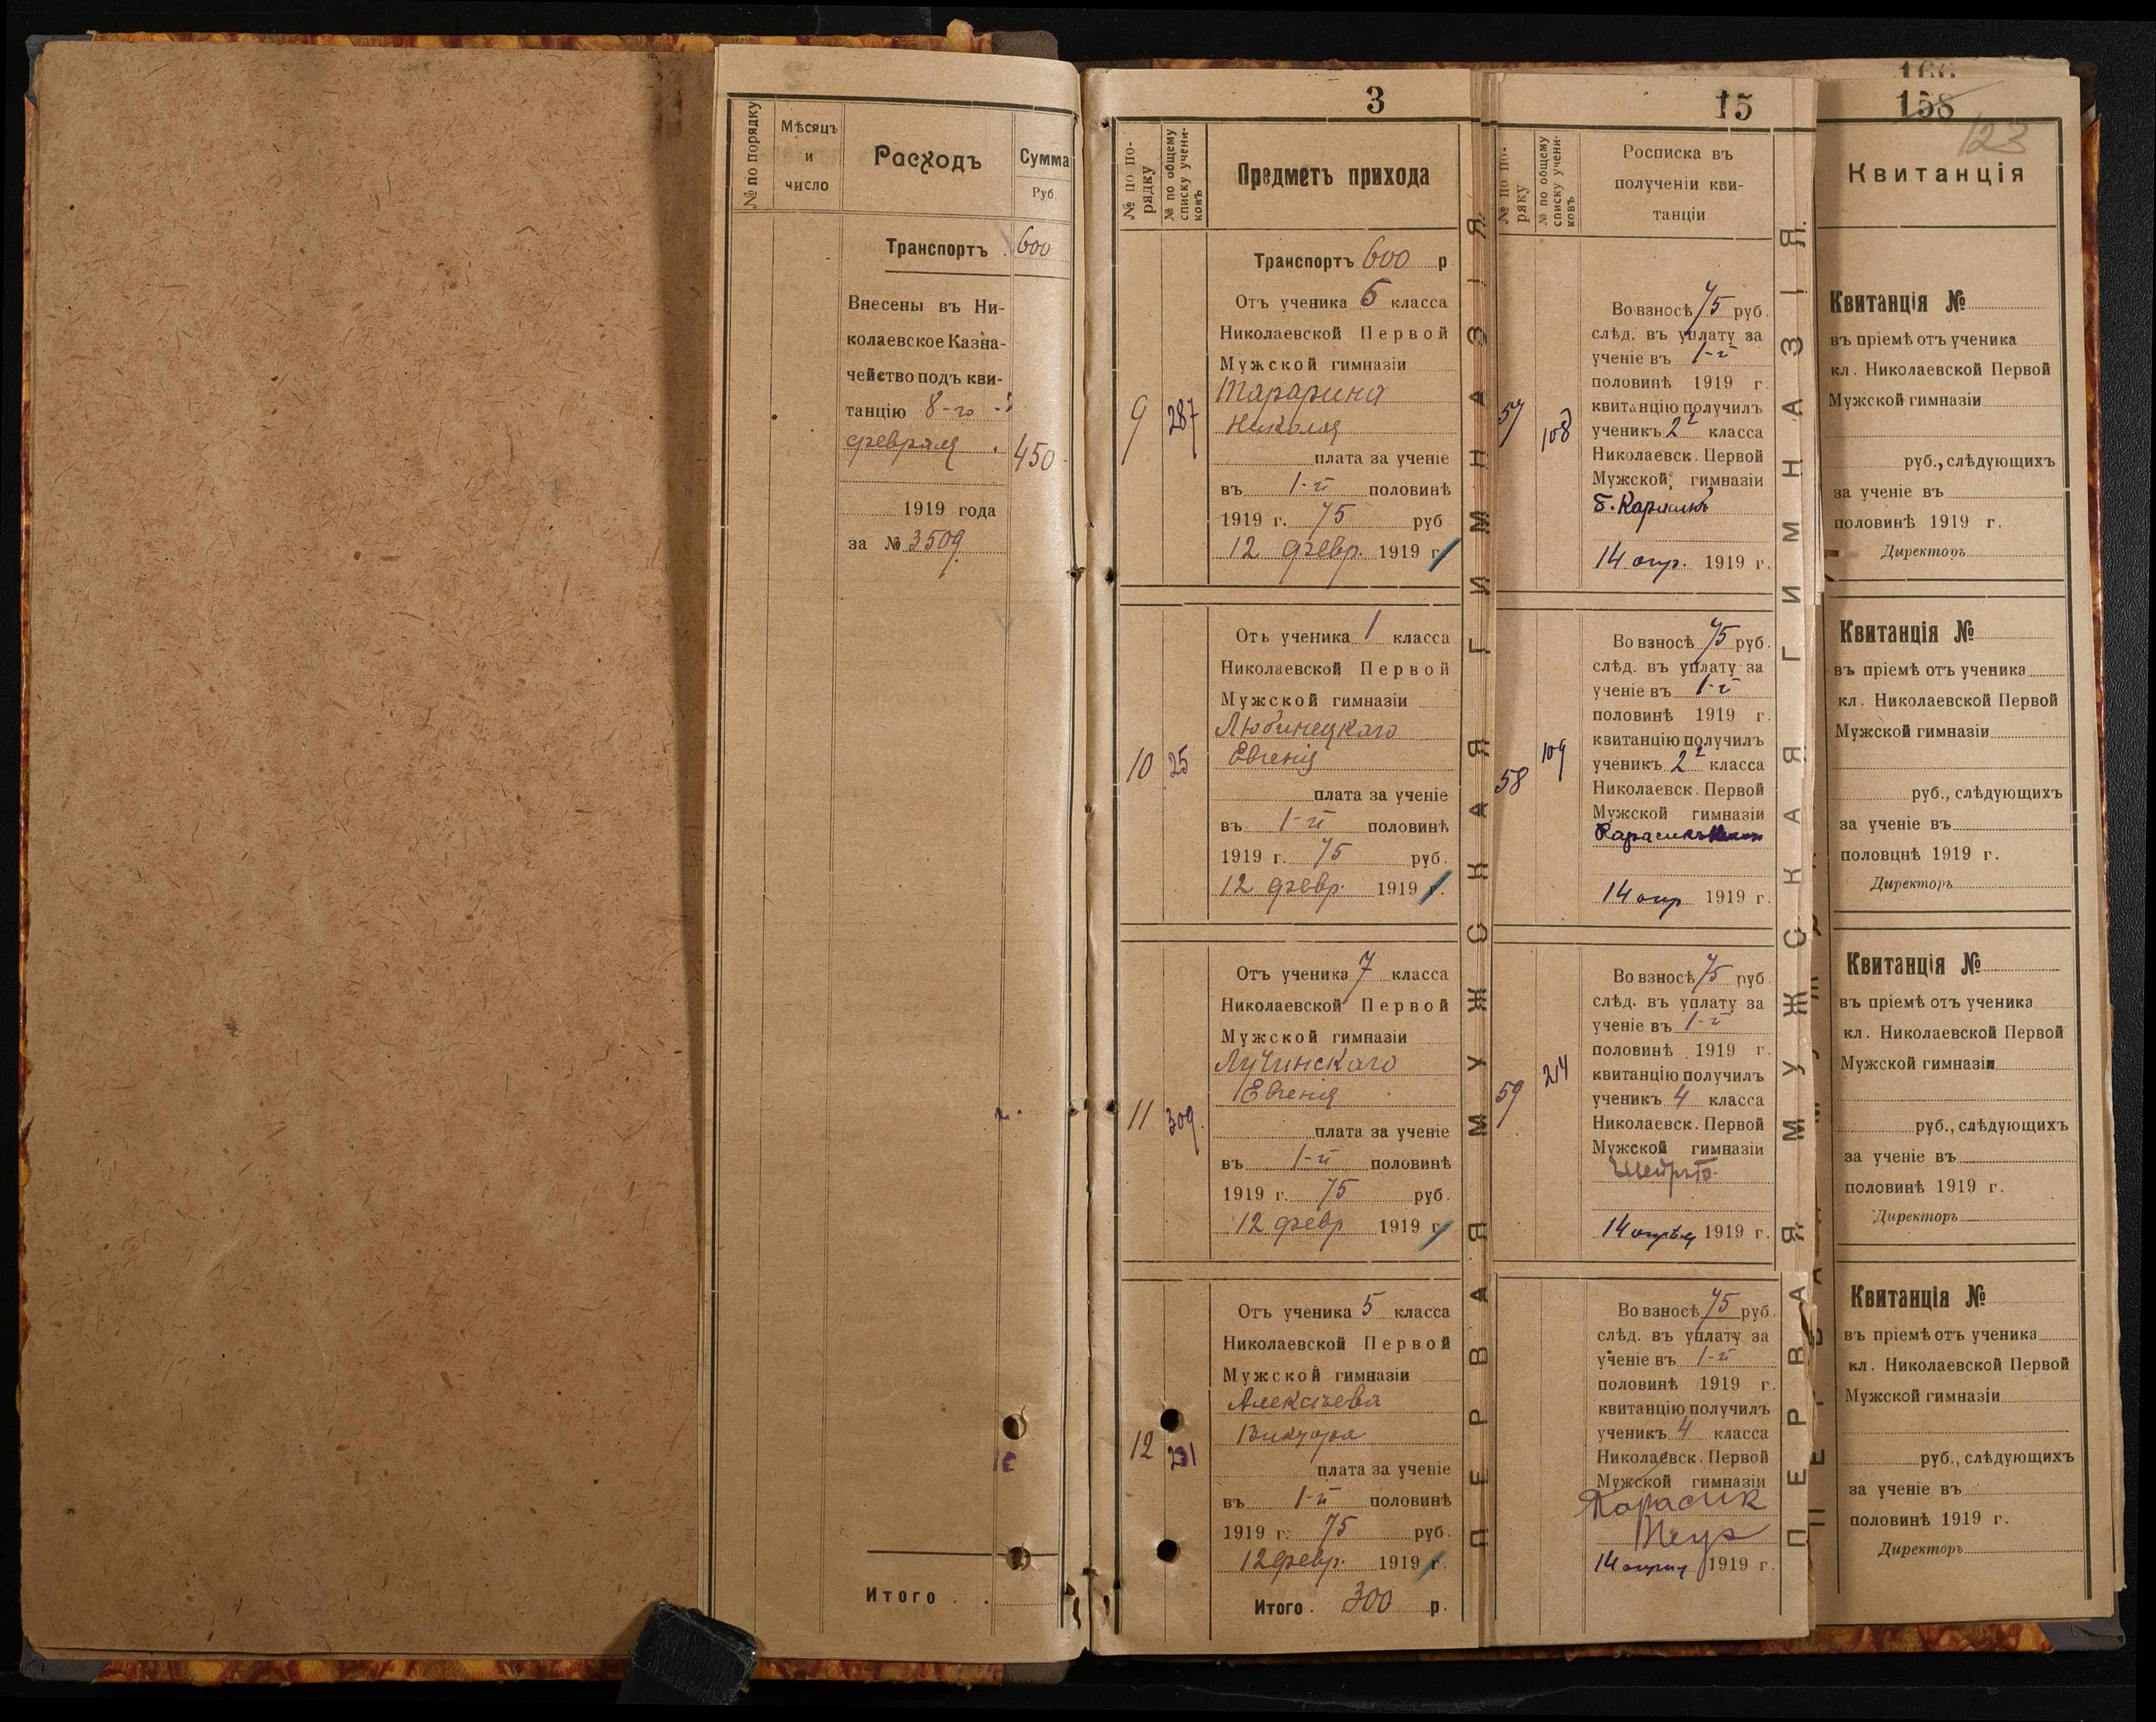 № по порядку
Мѣсяцъ
и
число
Расходъ
Сумма
Руб.
Транспортъ 600
Внесены въ Ни-
колаевское Казна-
чейство подъ кви-
танцію 8-го
февраля 450
1919 года
за № 3509
Итого
3
№ по по-
рядку
№ по общему
списку учени-
ковъ
Предметъ прихода
Транспортъ 600 р
9 287
Отъ ученика 6 класса
Николаевской Первой
Мужской гимназіи
Тарарина
Николая
плата за ученіе
въ 1-й половинѣ
1919 г. 75 руб
12 февр. 1919 г.
10 25
Отъ ученика 1 класса
Николаевской Первой
Мужской гимназіи
Любинецкаго
Евгенія
плата за ученіе
въ 1-й половинѣ
1919 г. 75 руб.
12 февр. 1919 г.
11 309
Отъ ученика 7 класса
Николаевской Первой
Мужской гимназіи
Лучинскаго
Евгенія
плата за ученіе
въ 1-й половинѣ
1919 г. 75 руб.
12 февр 1919 г.
12
Отъ ученика 5 класса
Николаевской Первой
Мужской гимназіи
Алексѣева
Виктора
плата за ученіе
въ 1-й половинѣ
1919 г. 75 руб.
12 февр. 1919 г.
Итого. 300 р.
ПЕРВАЯ МУЖСКАЯ ГИМНАЗІЯ.
15
№ по по-
ряку
№ по общему
списку учени-
ковъ
Росписка въ
полученіи кви-
танціи
57 108
Во взносѣ 75 руб.
слѣд. въ уплату за
ученіе въ 1-й
половинѣ 1919 г.
квитанцію получилъ
ученикъ 2² класса
Николаевск. Первой
Мужской гимназіи
Б. Карасикъ
14 апр. 1919 г.
58 109
Во взносѣ 75 руб.
слѣд. въ уплату за
ученіе въ 1-й
половинѣ 1919 г.
квитанцію получилъ
ученикъ 2² класса
Николаевск. Первой
Мужской гимназіи
Карасикъ
14 апр 1919 г.
59 214
Во взносѣ 75 руб
слѣд. въ уплату за
ученіе въ 1-й
половинѣ 1919 г.
квитанцію получилъ
ученикъ 4 класса
Николаевск. Первой
Мужской гимназіи
14 апрѣля 1919 г.
Во взносѣ 75 руб.
слѣд. въ уплату за
ученіе въ 1-й
половинѣ 1919 г.
квитанцію получилъ
ученикъ 4 класса
Николаевск. Первой
Мужской гимназіи
Карасик
14 апрѣля 1919 г.
ПЕРВАЯ МУЖСКАЯ ГИМНАЗІЯ.
158
123
Квитанція
Квитанція №
въ пріемѣ отъ ученика
кл. Николаевской Первой
Мужской гимназіи
руб., слѣдующихъ
за ученіе въ
половинѣ 1919 г.
Директоръ
Квитанція №
въ пріемѣ отъ ученика
кл. Николаевской Первой
Мужской гимназіи
руб., слѣдующихъ
за ученіе въ
половцнѣ 1919 г.
Директоръ
Квитанція №
въ пріемѣ отъ ученика
кл. Николаевской Первой
Мужской гимназіи
руб., слѣдующихъ
за ученіе въ
половинѣ 1919 г.
Директоръ
Квитанція №
въ пріемѣ отъ ученика
кл. Николаевской Первой
Мужской гимназіи
руб., слѣдующихъ
за ученіе въ
половинѣ 1919 г.
Директоръ